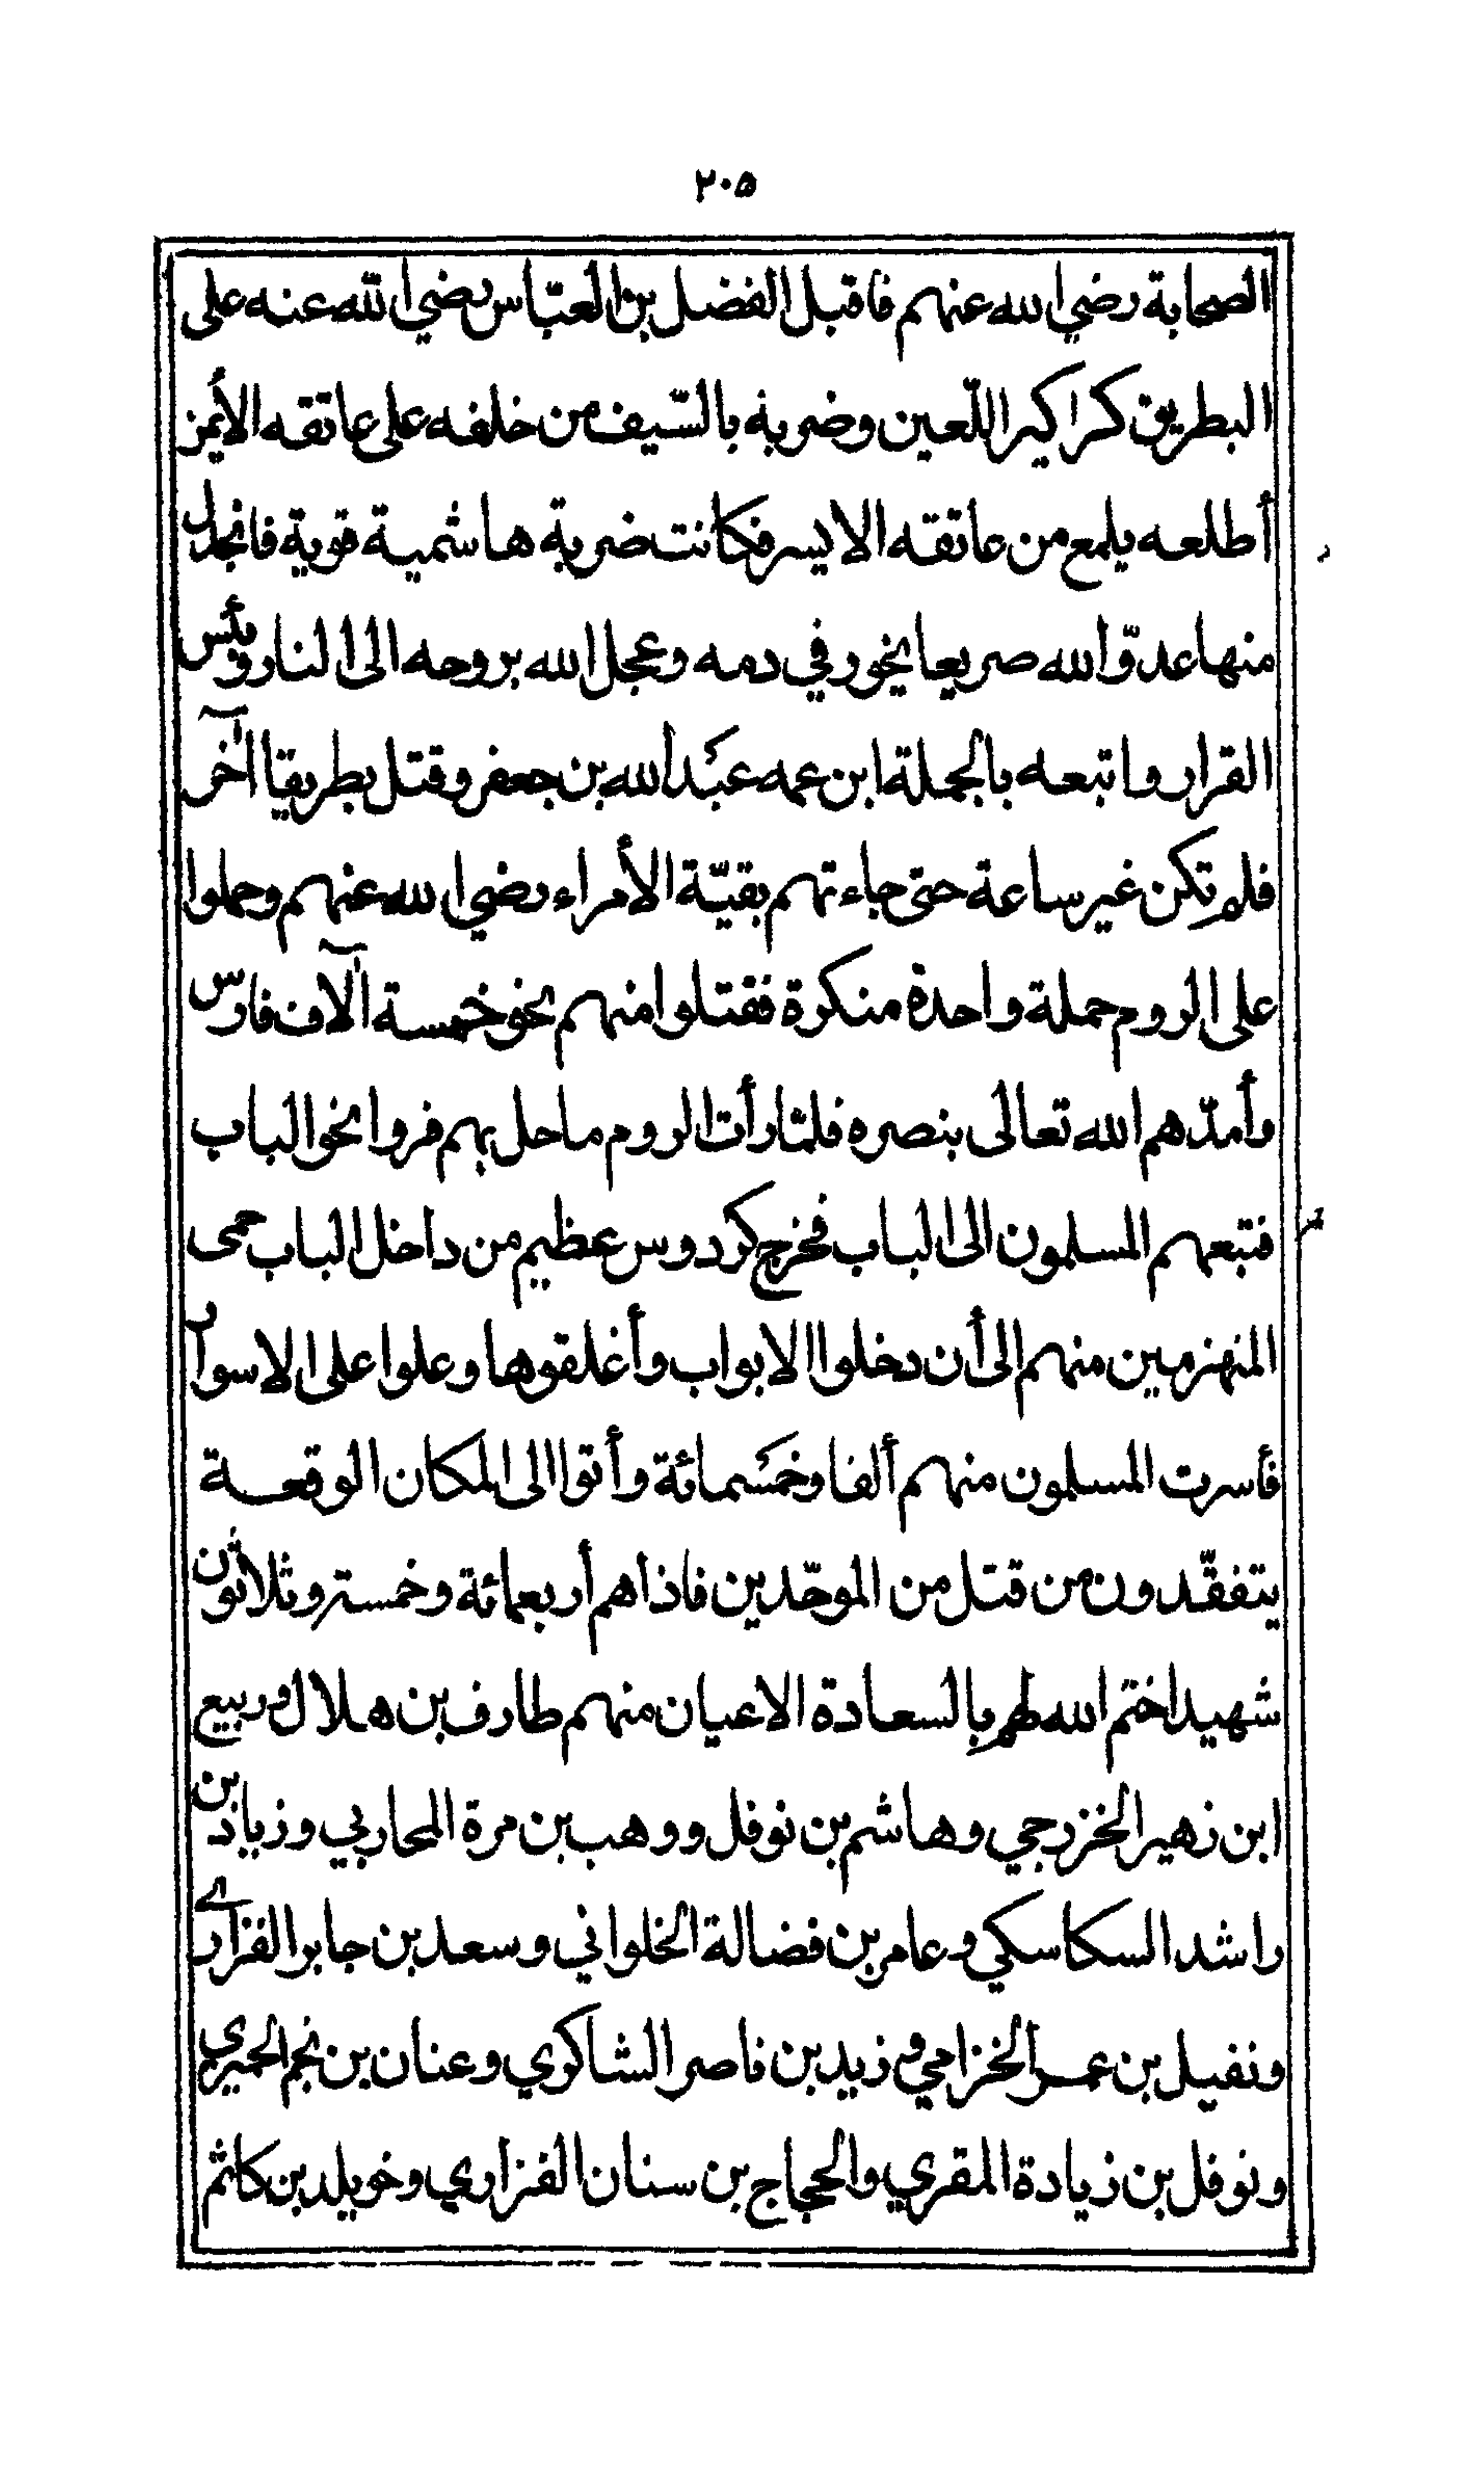 ٢٠٥
الصحابة رضي الله عنهم فاقبل الفضل بن العبّاس رضي اللّه عنه على
البطريق كراكير اللّعين وضربه بالسّيف من خلفه على عاتقه الأيمن
أطلعه يلمع من عاتقه الايسر فكانت ضربة هاشمية قوية فانجدل
منها عدوّ الله صريعا يخور في دمه وعجل الله بروحه الى النار وبئس
القرار واتبعه بالجملة ابن عمه عبد الله بن جعفر وقتل بطريقا آخر
فلم تكن غير ساعة حتى جاءتهم بقيّة الأمراء رضي الله عنهم وحملوا
على الروم حملة واحدة منكرة فقتلوا منهم نحو خمسة آلاف فارس
وأمدّهم الله تعالى بنصره فلمّا رأت الروم ما حل بهم فروا نحو الباب
فتبعهم المسلمون الى الباب فخرج كردوس عظيم من داخل الباب حمى
المنهزمين منهم الى أن دخلوا الابواب وأغلقوها وعلوا على الاسوار
فأسرت المسلمون منهم ألفا وخمسمائة وأتوا الى المكان الوقعة
يتفقّدون من قتل من الموحّدين فاذا هم أربعمائة وخمسة وثلاثون
شهيدا ختم الله لهم بالسعادة الاعيان منهم طارف بن هلال وربيع
ابن زهير الخزرجي وهاشم بن نوفل ووهب بن مرة المحاربي وزياد بن
راشد السكاسكي وعامر بن فضالة الخلواني وسعد بن جابر الفزاري
ونفيل بن عمر الخزامي وزيد بن ناصر الشاكوي وعنان بن نجم الحميري
ونوفل بن زيادة المقري والحجاج بن سنان الفزاري وخويلد بن كلثم